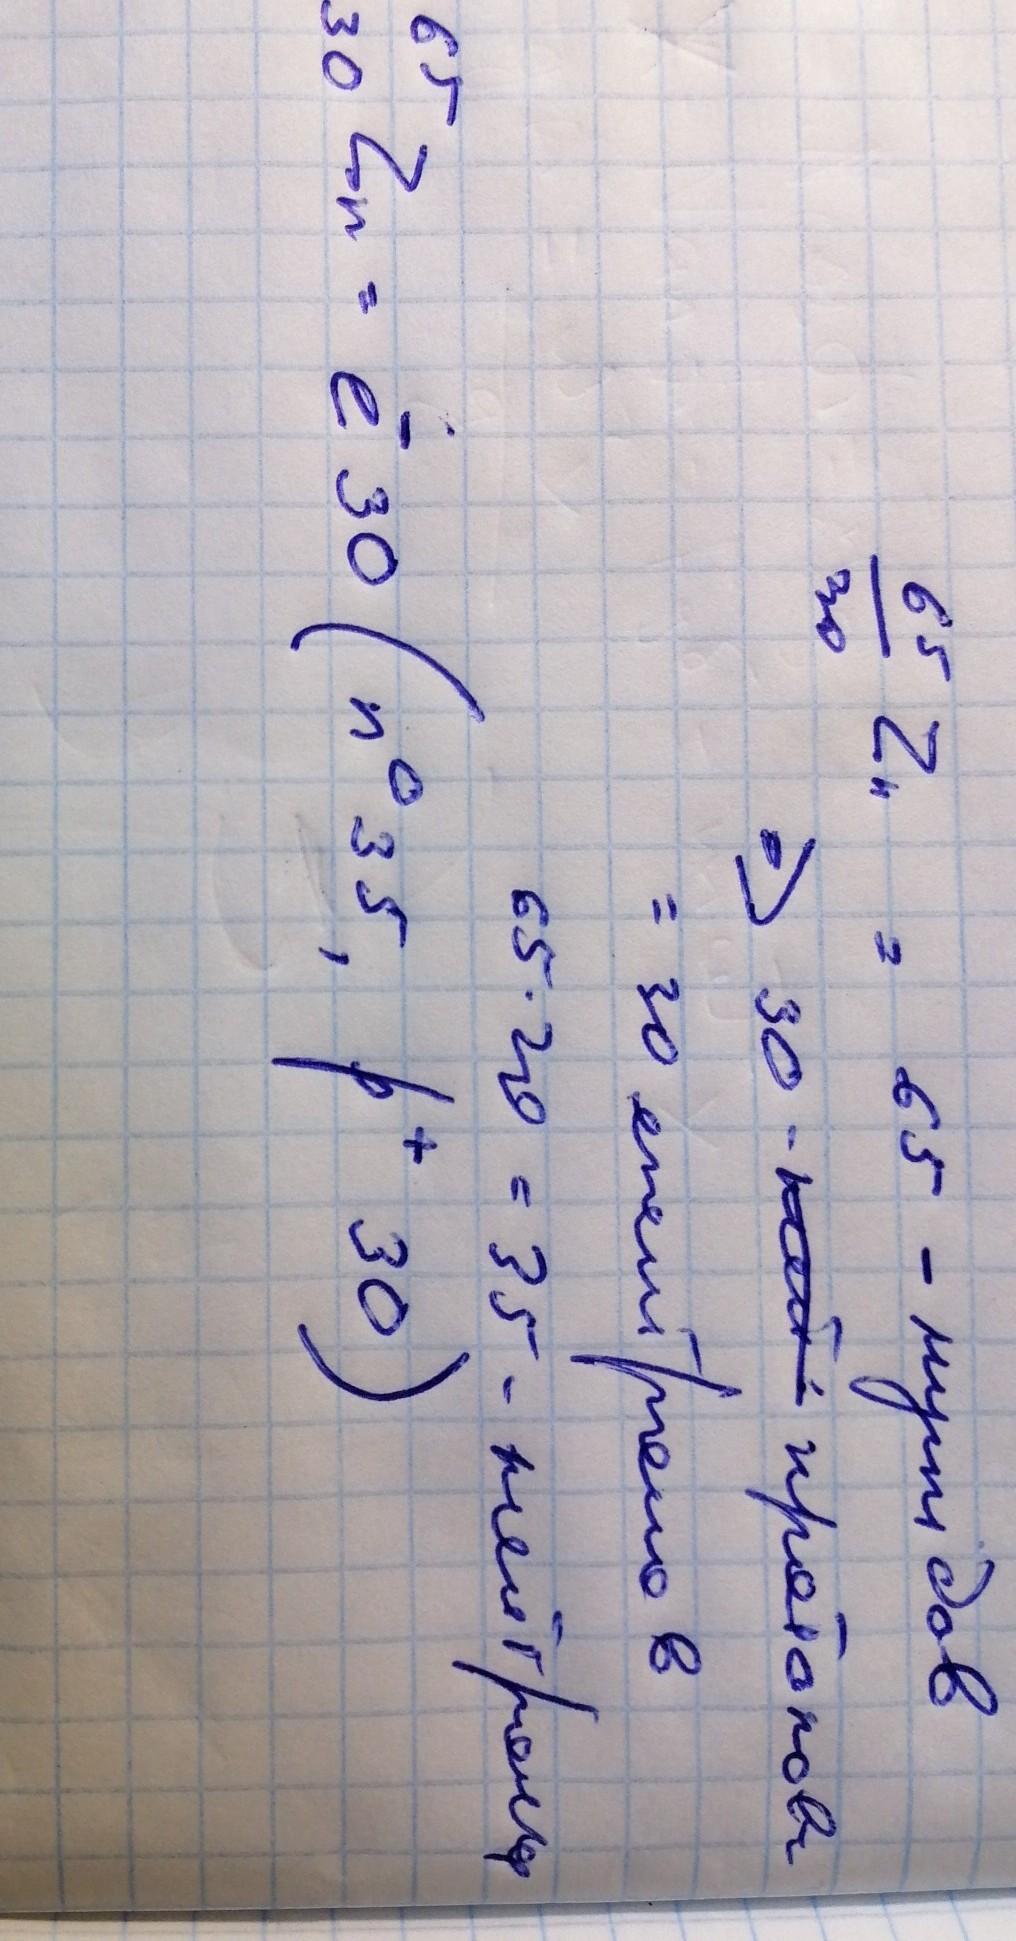 65/30 Zn = 65 - нуклидов
⇒ 30 - протонов
= 30 электронов
65-30 = 35 - нейтроны
⁶⁵₃₀Zn = e⁻30 (n⁰35, p⁺30)